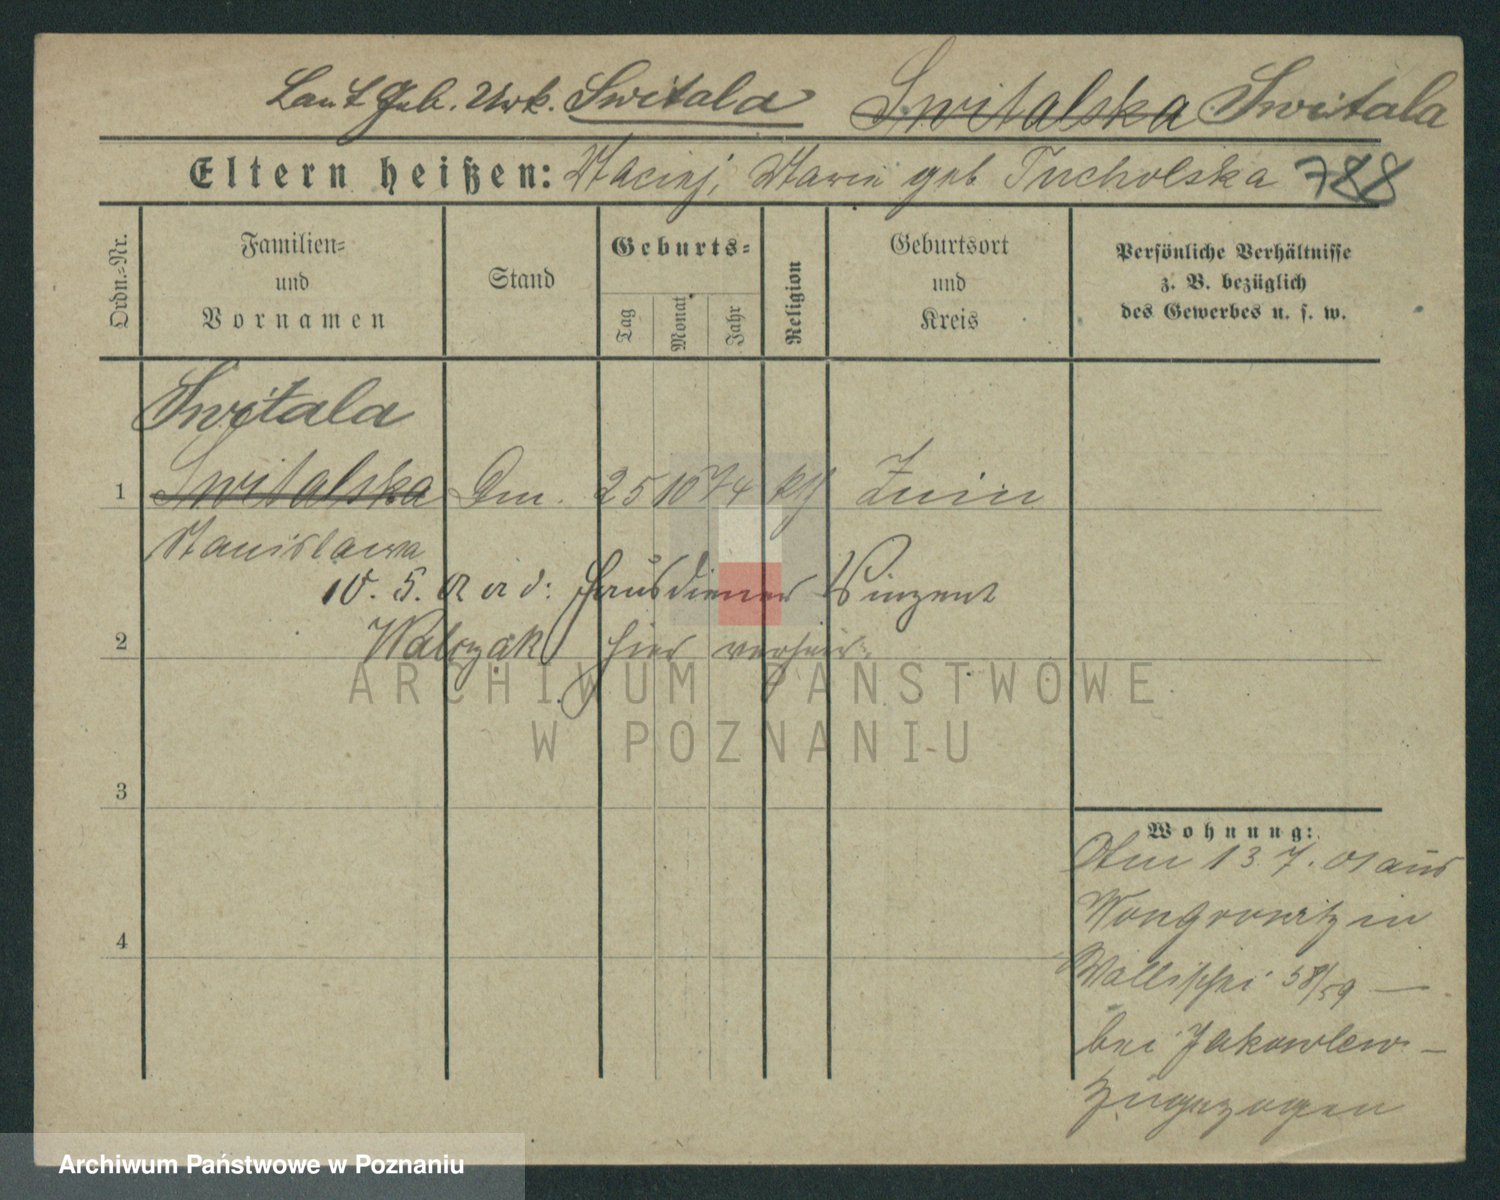 Laut Geb. Urk. Switala Switalska Switala
Eltern heißen: Maciej, Marie geb Tucholska 788
Ordn.=Nr.
Familien=
und
Vornamen
Stand
Geburts=
Tag
Monat
Jahr
Religion
Geburtsort
und
Kreis
Persönliche Verhältnisse
z. B. bezüglich
des Gewerbes u. s. w.
Switala
1 Switalska 25 10 74 kth Znin
Stanislawa
10. 5. d: Hausdiener Vinzent
2 Walczak hier verheir.
3
Wohnung:
13. 7. 01 aus
Wongrowitz in
4
Wallischei 58/59 —
bei Jakowlew —
zugezogen
ARCHIWUM PAŃSTWOWE
W POZNANIU
Archiwum Państwowe w Poznaniu